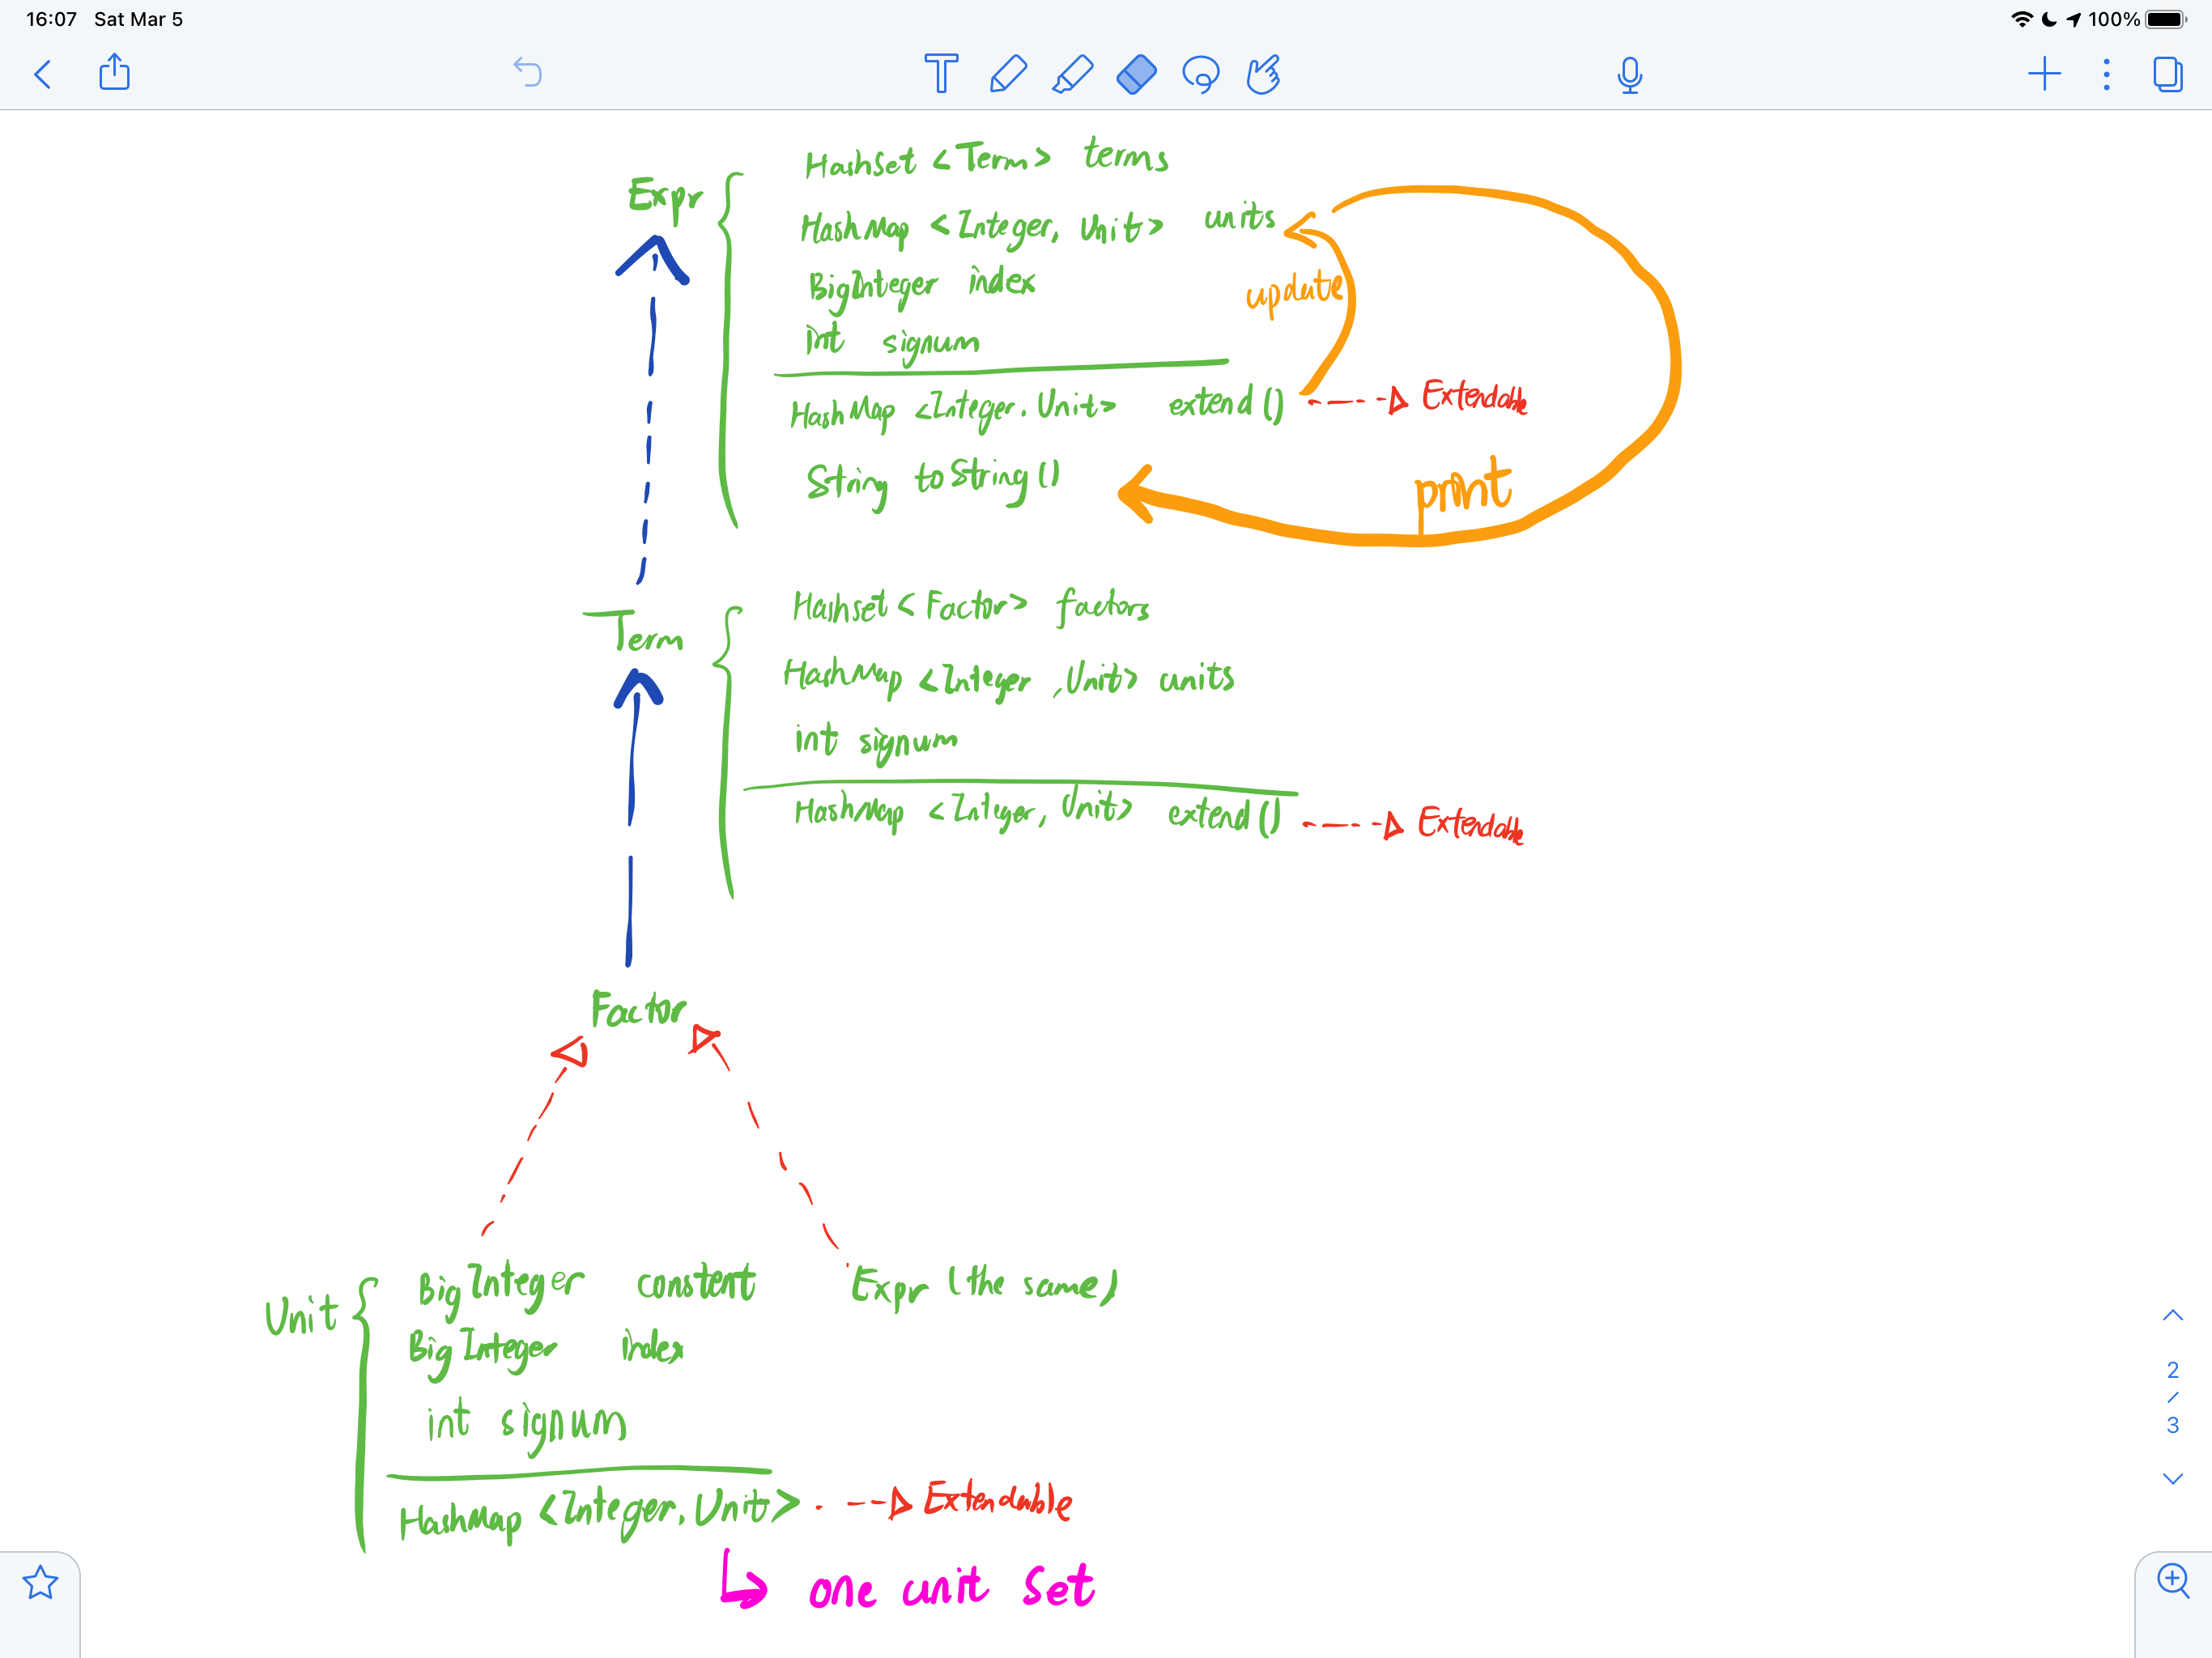 16:07 Sat Mar 5
100%
T
Expr
HashSet <Term> terms
HashMap <Integer, Unit> units
BigInteger index
update
int signum
HashMap <Integer. Unit> extend() Extendable
String toString()
print
Term
Hashset <Factor> factors
HashMap <Integer ,Unit> units
int signum
HashMap <Integer, Unit> extend() Extendable
Factor
Unit
BigInteger constant
Expr (the same)
BigInteger index
int signum
HashMap <Integer, Unit> Extendable
one unit set
2
/
3